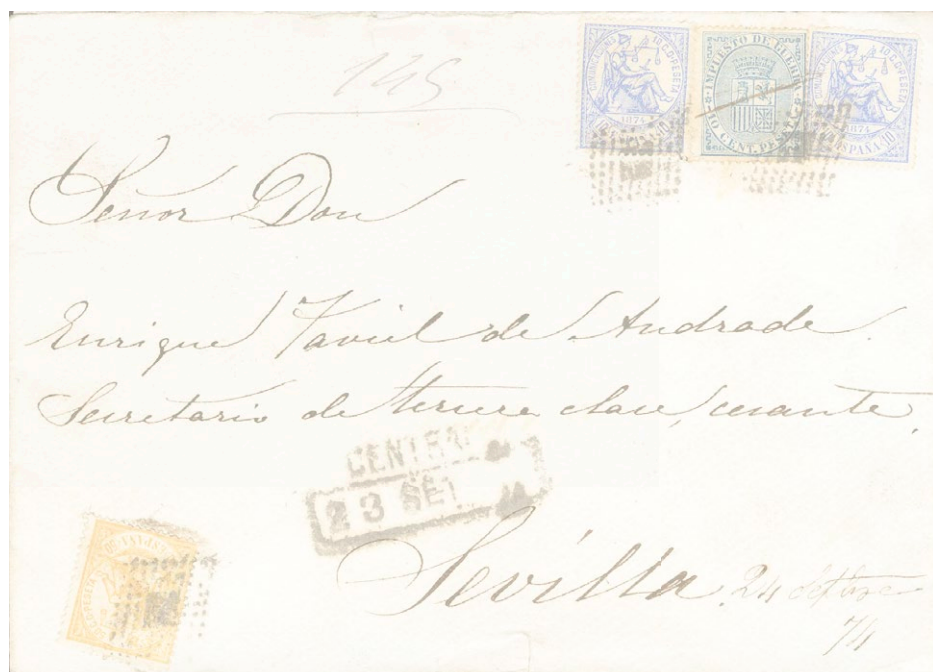 145
COMUNICACIONES 10 C. D. PESETA
1874
10 ESPAÑA 10
IMPUESTO DE GUERRA
10 CENT. PESETA
10 C. D. PESETA
1874
ESPAÑA 10
Señor Don
Enrique Taviel de Andrade.
Secretario de tercera clase, cesante,
CENTRAL
23 SET
Sevilla 24 Setbre
74